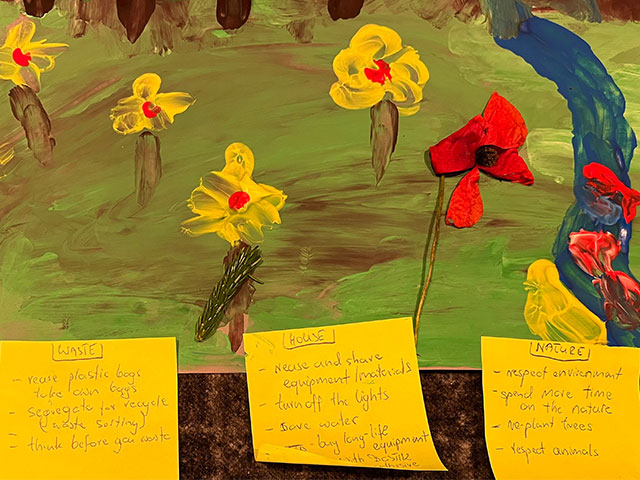 WASTE
- reuse plastic bags
take own bags
- segregate for recycle
(waste sorting)
- think before you waste
HOUSE
- Reuse and share
equipment/materials
- turn off the lights
- Save water
- buy long-life
equipment
NATURE
- respect environment
- spend more time
on the nature
- re-plant trees
- respect animals